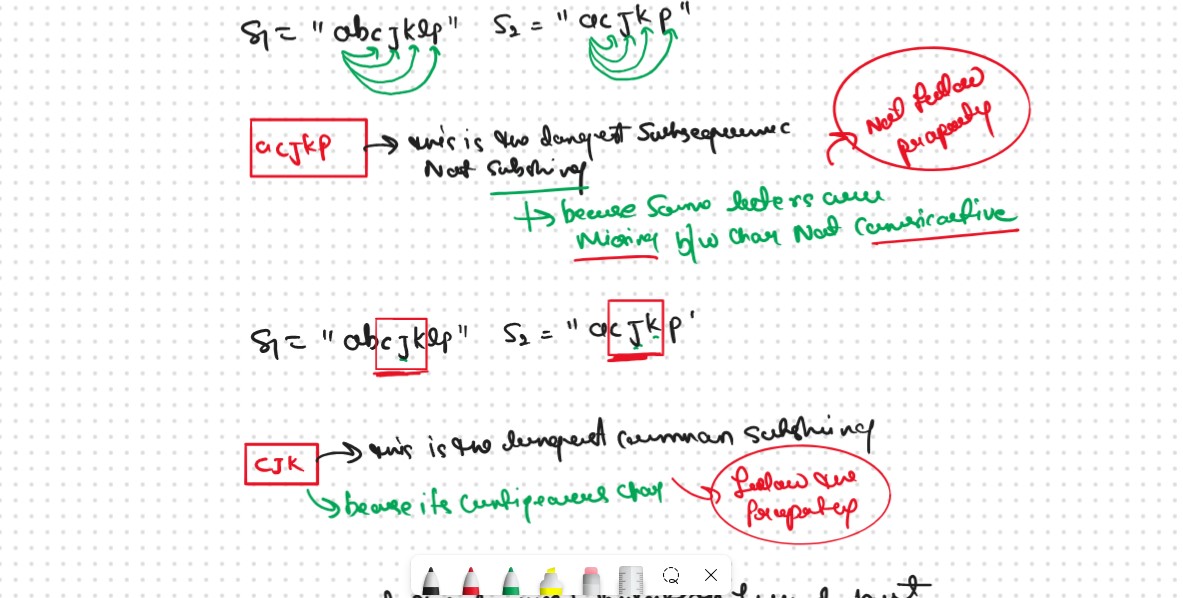 S1 = " abcjklp"   S2 = " acJkp"
acJkp → this is the longest Subsequence
Not substring
Not follow
property
→ because some letters are
Missing b/w char Not Consicactive
S1 = " abcjklp"   S2 = " acJkp'
CJK → this is the longest common substring
→ because its contigeaous char → follow the
property